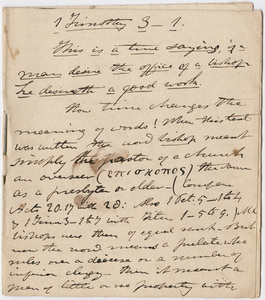 1 Timothy 3-1.
This is a true saying, if a
man desire the office of a bishop
he desireth a good work.
How time changes the
meaning of words! When this text
was written the word bishop meant
simply the pastor of a church
an overseer (επισκοπος) the same
as a presbyter or elder - (compare
Acts 20.17 with 28: Also 1 Pet. 5-1&4
& 1 Tim 3-1&7 with Titus 1-5&9.) All
bishops were then of equal rank. But
now the word means a prelate who
rules over a diocese or a number of
inferior clergy - then it meant a
man of little or no property with